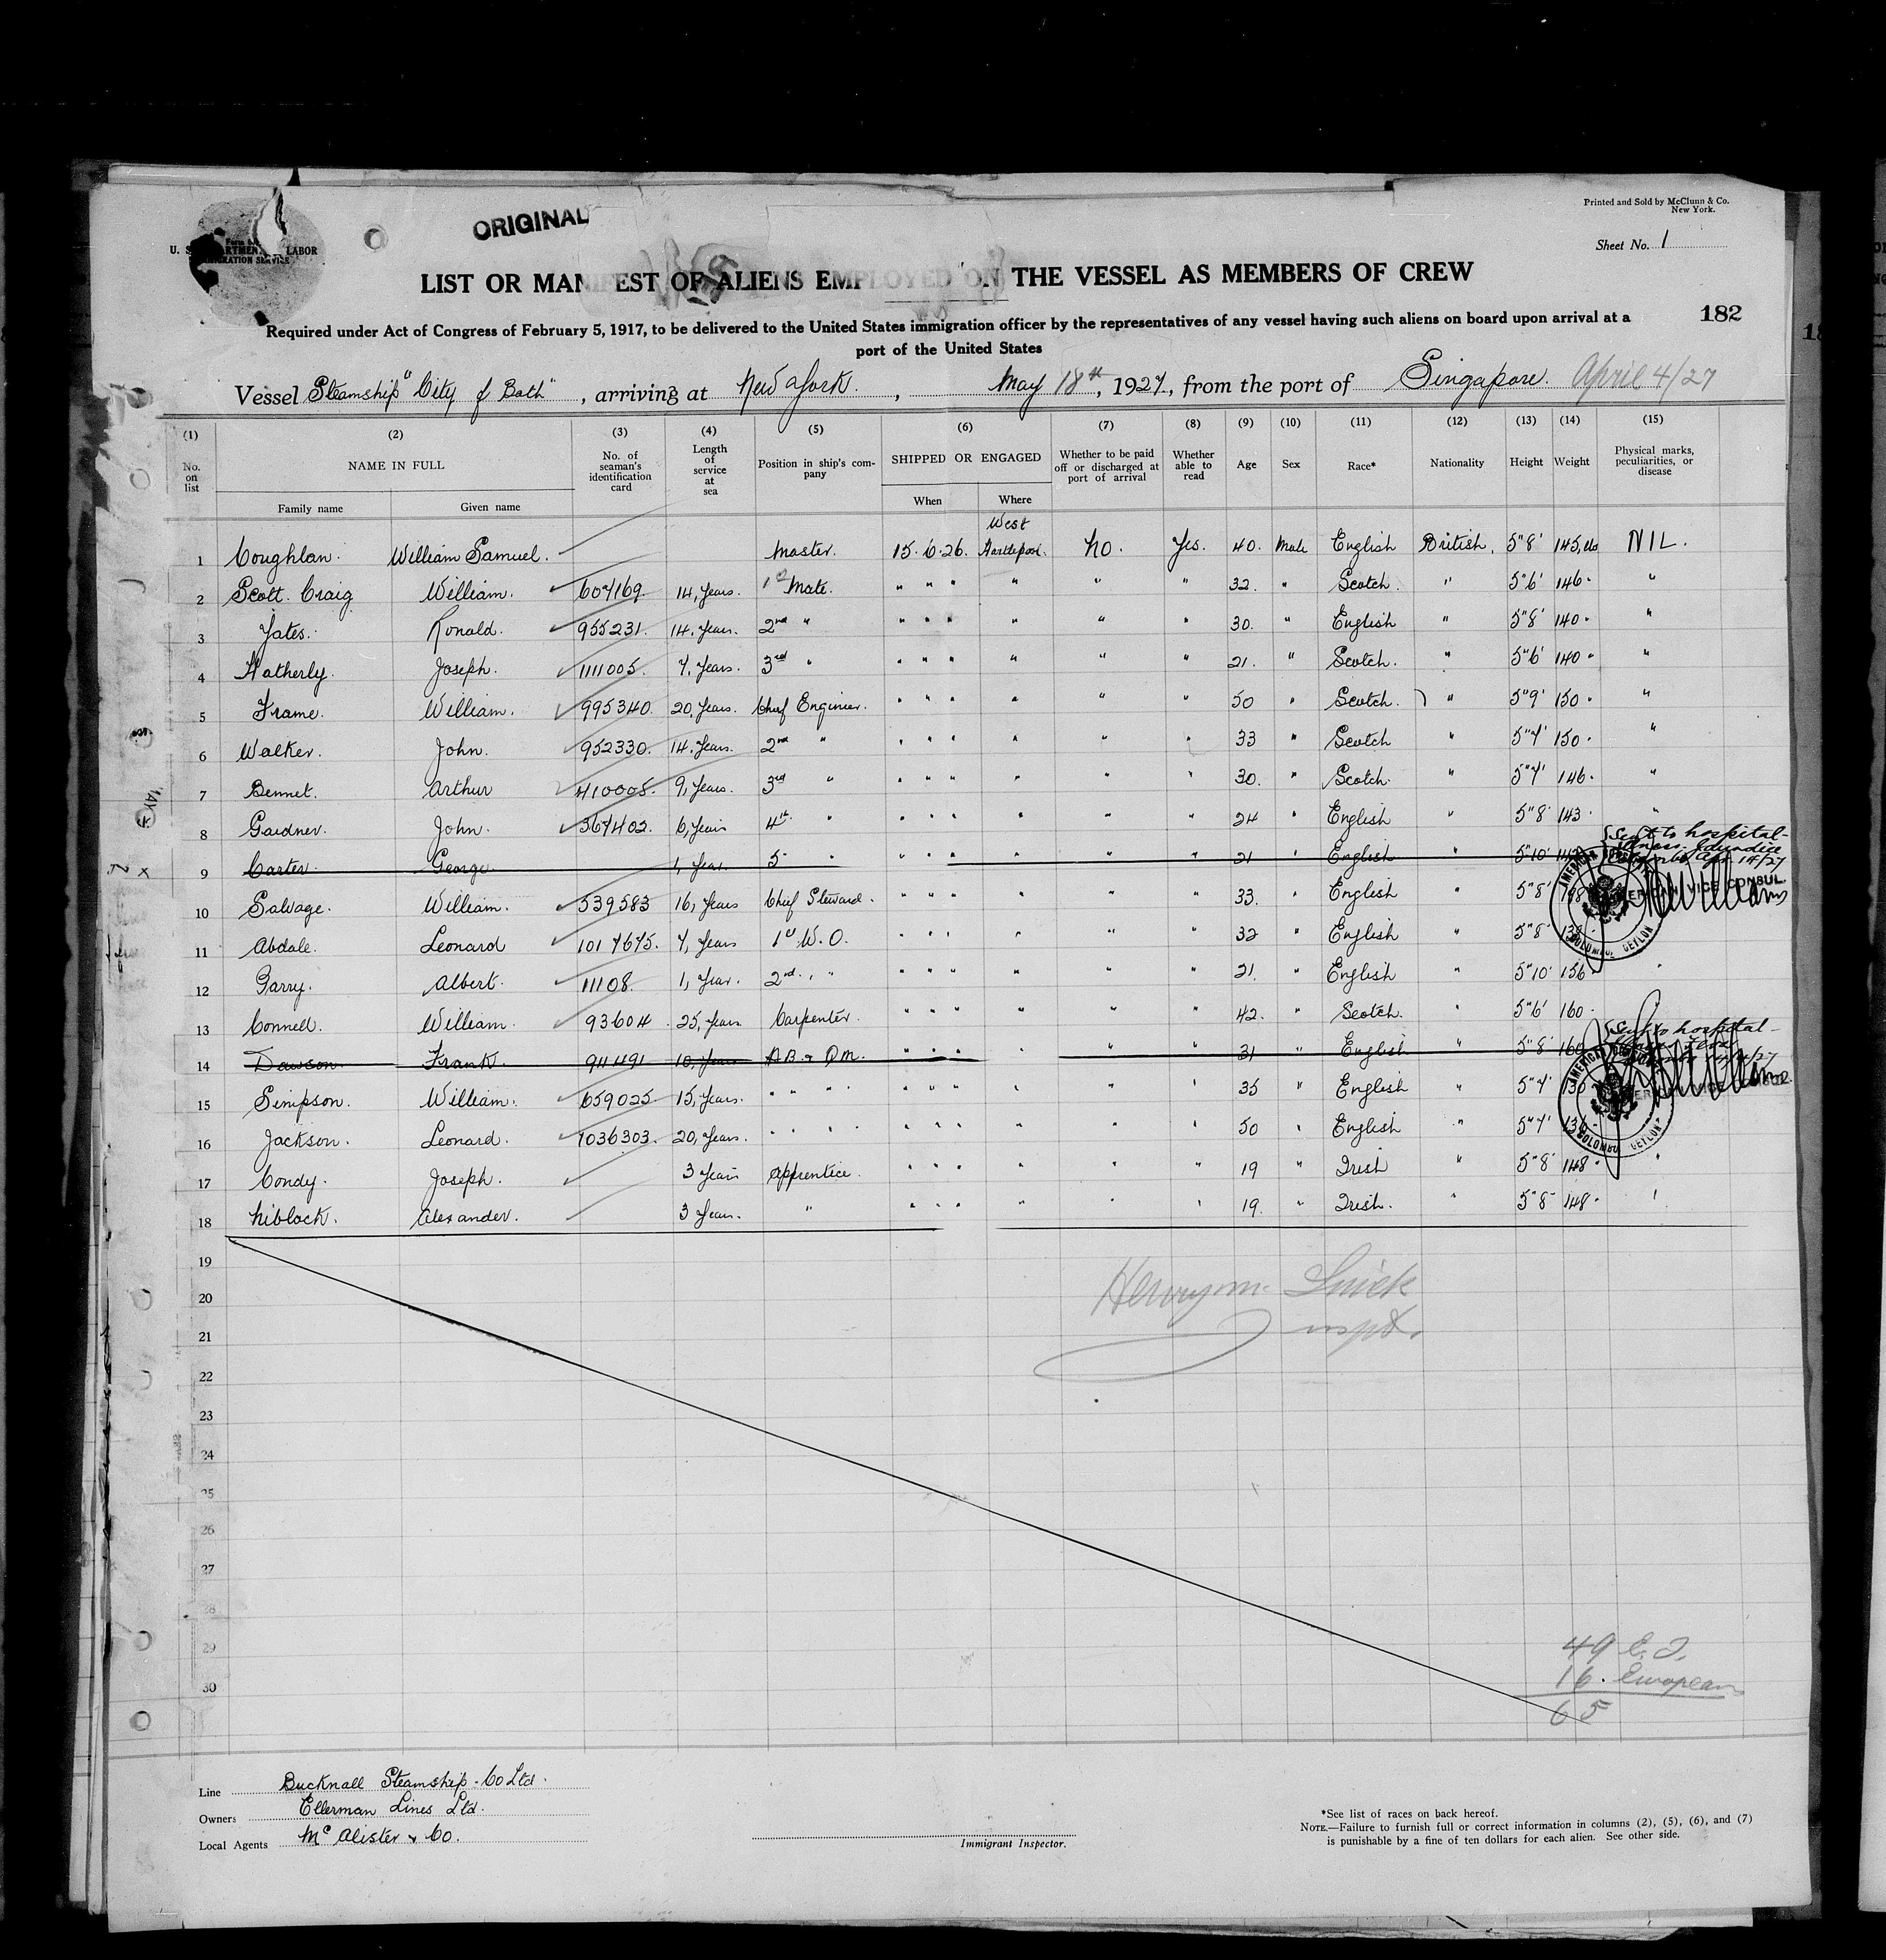 Printed and Sold by McClunn & Co.
New York.
ORIGINAL
U. S. LABOR
Sheet No. 1
LIST OR MANIFEST OF ALIENS EMPLOYED ON THE VESSEL AS MEMBERS OF CREW
182
Required under Act of Congress of February 5, 1917, to be delivered to the United States immigration officer by the representatives of any vessel having such aliens on board upon arrival at a
port of the United States
Vessel Steamship "City of Bath", arriving at New York, May 18th, 1927, from the port of Singapore. April 4/27
(1) (2) (3) (4) (5) (6) (7) (8) (9) (10) (11) (12) (13) (14) (15)
No. on list NAME IN FULL No. of seaman's identification card Length of service at sea Position in ship's company SHIPPED OR ENGAGED Whether to be paid off or discharged at port of arrival Whether able to read Age Sex Race* Nationality Height Weight Physical marks, peculiarities, or disease
Family name Given name When Where
1 Coughlan. William Samuel. Master. 15.6.26. West Hartlepool. No. Yes. 40. Male English British. 5"8' 145, lbs NIL.
2 Scott. Craig William. 604169. 14, Years. 1st Mate. " " " " " " 32. " Scotch. " 5"6' 146. "
3 Yates. Ronald. 955231. 14. Years. 2nd " " " " " " " 30. " English " 5"8' 140. "
4 Hatherly. Joseph. 1111005. 4, Years. 3rd " " " " " " " 21. " Scotch. " 5"6' 140. "
5 Frame. William. 995340. 20, Years. Chief Engineer. " " " " " " 50 " Scotch. " 5"9' 150. "
6 Walker. John. 952330. 14. Years. 2nd " " " " " " " 33 " Scotch " 5"4' 150. "
7 Bennet. Arthur 410005. 9, Years. 3rd " " " " " " " 30. " Scotch. " 5"4' 146. "
8 Gardner. John. 364402. 6, Years 4th " " " " " " " 24 " English " 5"8' 143. "
9 Carter. George. 1, Year. 5 " " " " " " " 21 " English " 5"10' Sent to hospital - Apr 14/27
10 Salvage. William. 539583 16, Years Chief Steward. " " " " " " 33. " English " 5"8'
AMERICAN VICE CONSUL.
COLOMBO, CEYLON
11 Abdale. Leonard 1014645. 4, Years 1st W.O. " " " " " " 32 " English " 5"8'
12 Garry. Albert. 11108. 1, Year. 2nd. " " " " " " " 21. " English " 5"10' 156. "
13 Connell. William. 93604 25, Years. Carpenter. " " " " " " 42. " Scotch. " 5"6' 160.
14 Dawson. Frank. 911491 10, Years A.B. & Q.M. " " " " " " 31 " English " 5"8' 160 Sent to hospital -
15 Simpson. William. 659025 15, Years. " " " " " " " " 35 " English " 5"4'
AMERICAN VICE CONSUL
COLOMBO, CEYLON
16 Jackson. Leonard. 1036303. 20, Years. " " " " " " " " 50 " English " 5"4'
17 Condy. Joseph. 3 Years Apprentice. " " " " " " 19 " Irish " 5"8' 148. "
18 Niblock. Alexander. 3 Years. " " " " " " " 19. " Irish. " 5"8' 148. "
19
20
21
22
23
24
25
26
27
28
29
30
Inspt.
49 E. I.
16. European
65
Line Bucknall Steamship Co Ltd.
Owners Ellerman Lines Ltd.
Local Agents Mc Alister & Co.
Immigrant Inspector.
*See list of races on back hereof.
NOTE.—Failure to furnish full or correct information in columns (2), (5), (6), and (7)
is punishable by a fine of ten dollars for each alien. See other side.